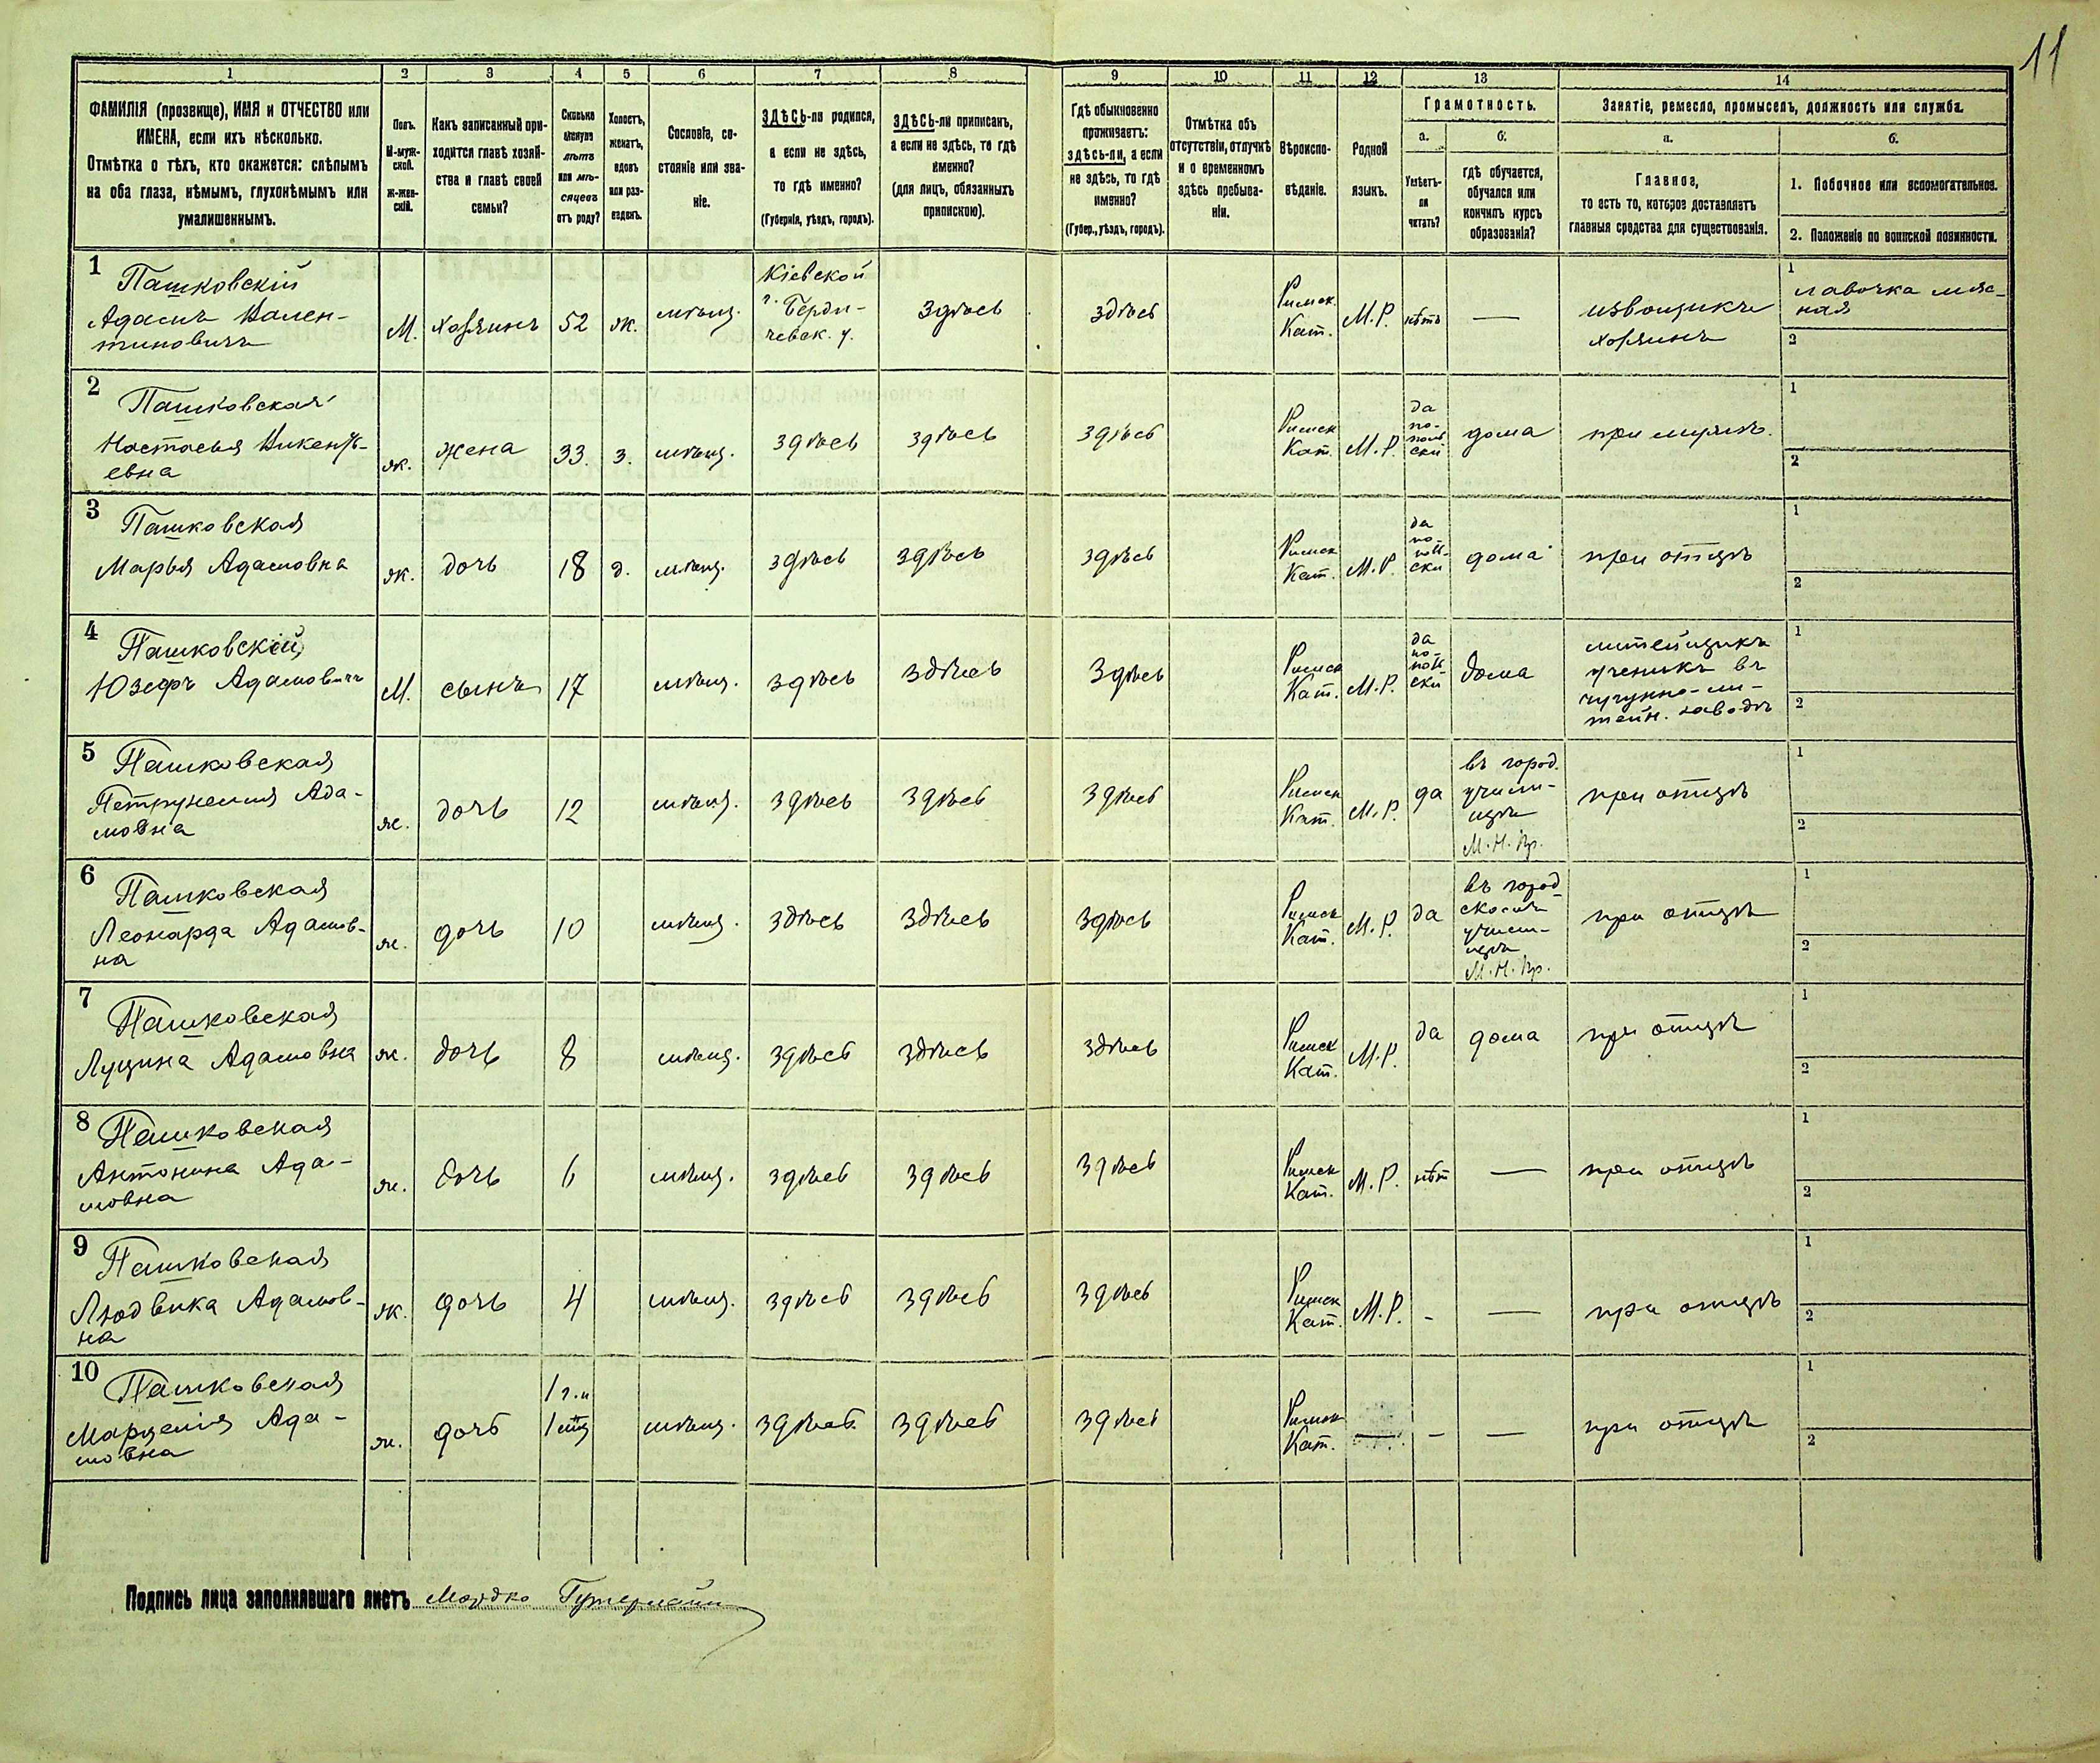 11
1 2 3 4 5 6 7 8 9 10 11 12 13 14
ФАМИЛІЯ (прозвище), ИМЯ и ОТЧЕСТВО или
ИМЕНА, если ихъ нѣсколько.
Отмѣтка о тѣхъ, кто окажется: слѣпымъ
на оба глаза, нѣмымъ, глухонѣмымъ или
умалишеннымъ.
Полъ.
М-муж-
ской.
Ж-жен-
скій.
Какъ записанный при-
ходится главѣ хозяй-
ства и главѣ своей
семьи?
Сколько
минуло
лѣтъ
или мѣ-
сяцевъ
отъ роду?
Холостъ,
женатъ,
вдовъ
или раз-
веденъ.
Сословіе, со-
стояніе или зва-
ніе.
ЗДѢСЬ-ли родился,
а если не здѣсь,
то гдѣ именно?
(Губернія, уѣздъ, городъ).
ЗДѢСЬ-ли приписанъ,
а если не здѣсь, то гдѣ
именно?
(для лицъ, обязанныхъ
припискою).
Гдѣ обыкновенно
проживаетъ:
здѣсь-ли, а если
не здѣсь, то гдѣ
именно?
(Губер., уѣздъ, городъ).
Отмѣтка объ
отсутствіи, отлучкѣ
и о временномъ
здѣсь пребыва-
ніи.
Вѣроиспо-
вѣданіе.
Родной
языкъ.
Грамотность.
а.
Умѣетъ-
ли
читать?
б.
гдѣ обучается,
обучался или
кончилъ курсъ
образованія?
Занятіе, ремесло, промыселъ, должность или служба.
а.
Главное,
то есть то, которое доставляетъ
главныя средства для существованія.
б.
1. Побочное или вспомогательное.
2. Положеніе по воинской повинности.
1
Пашковскій
Адамъ Вален-
тиновичъ
М.
хозяинъ
52
ж.
мѣщ.
Кіевской
г. Берди-
чевск. у.
Здѣсь
здѣсь
Римск
Кат.
М.Р.
нѣтъ
—
извощикъ
хозяинъ
1
лавочка мяс-
ная
2
2
Пашковская
Настасья Викенть-
евна
ж.
жена
33
з.
мѣщ.
здѣсь
здѣсь
здѣсь
Римск
Кат.
М.Р.
да
по-
поль
ски
дома
при мужѣ.
1
2
3
Пашковская
Марья Адамовна
ж.
дочь
18
д.
мѣщ.
здѣсь
здѣсь
здѣсь
Римск
Кат.
М.Р.
да
по-
пол-
ски
дома
при отцѣ
1
2
4
Пашковскій
Юзефъ Адамовичъ
М.
сынъ
17
мѣщ.
здѣсь
здѣсь
Здѣсь
Римск
Кат.
М.Р.
да
по-
пол
ски
дома
литейщикъ
ученикъ въ
чугунно-ли-
тейн. заводѣ
1
2
5
Пашковская
Петрунелия Ада-
мовна
ж.
дочь
12
мѣщ.
здѣсь
здѣсь
здѣсь
Римск
Кат.
М.Р.
да
въ город.
учили-
щѣ
М.Н.Пр.
при отцѣ
1
2
6
Пашковская
Леонарда Адамов-
на
ж.
дочь
10
мѣщ.
здѣсь
здѣсь
здѣсь
Римск
Кат.
М.Р.
да
въ город
скомъ
учили-
щѣ
М.Н.Пр.
при отцѣ
1
2
7
Пашковская
Луцина Адамовна
ж.
дочь
8
мѣщ.
здѣсь
здѣсь
здѣсь
Римск
Кат.
М.Р.
да
дома
при отцѣ
1
2
8
Пашковская
Антонина Ада-
мовна
ж.
дочь
6
мѣщ.
здѣсь
здѣсь
здѣсь
Римск
Кат.
М.Р.
нѣт
—
при отцѣ
1
2
9
Пашковская
Людвика Адамов-
на
ж.
дочь
4
мѣщ.
здѣсь
здѣсь
здѣсь
Римск
Кат.
М.Р.
-
—
при отцѣ
1
2
10
Пашковская
Марцелія Ада-
мовна
ж.
дочь
1 г. и
1 мц
мѣщ.
здѣсь
здѣсь
здѣсь
Римск
Кат.
—
-
—
при отцѣ
1
2
Подпись лица заполнявшаго листъ Мордко Гутерман